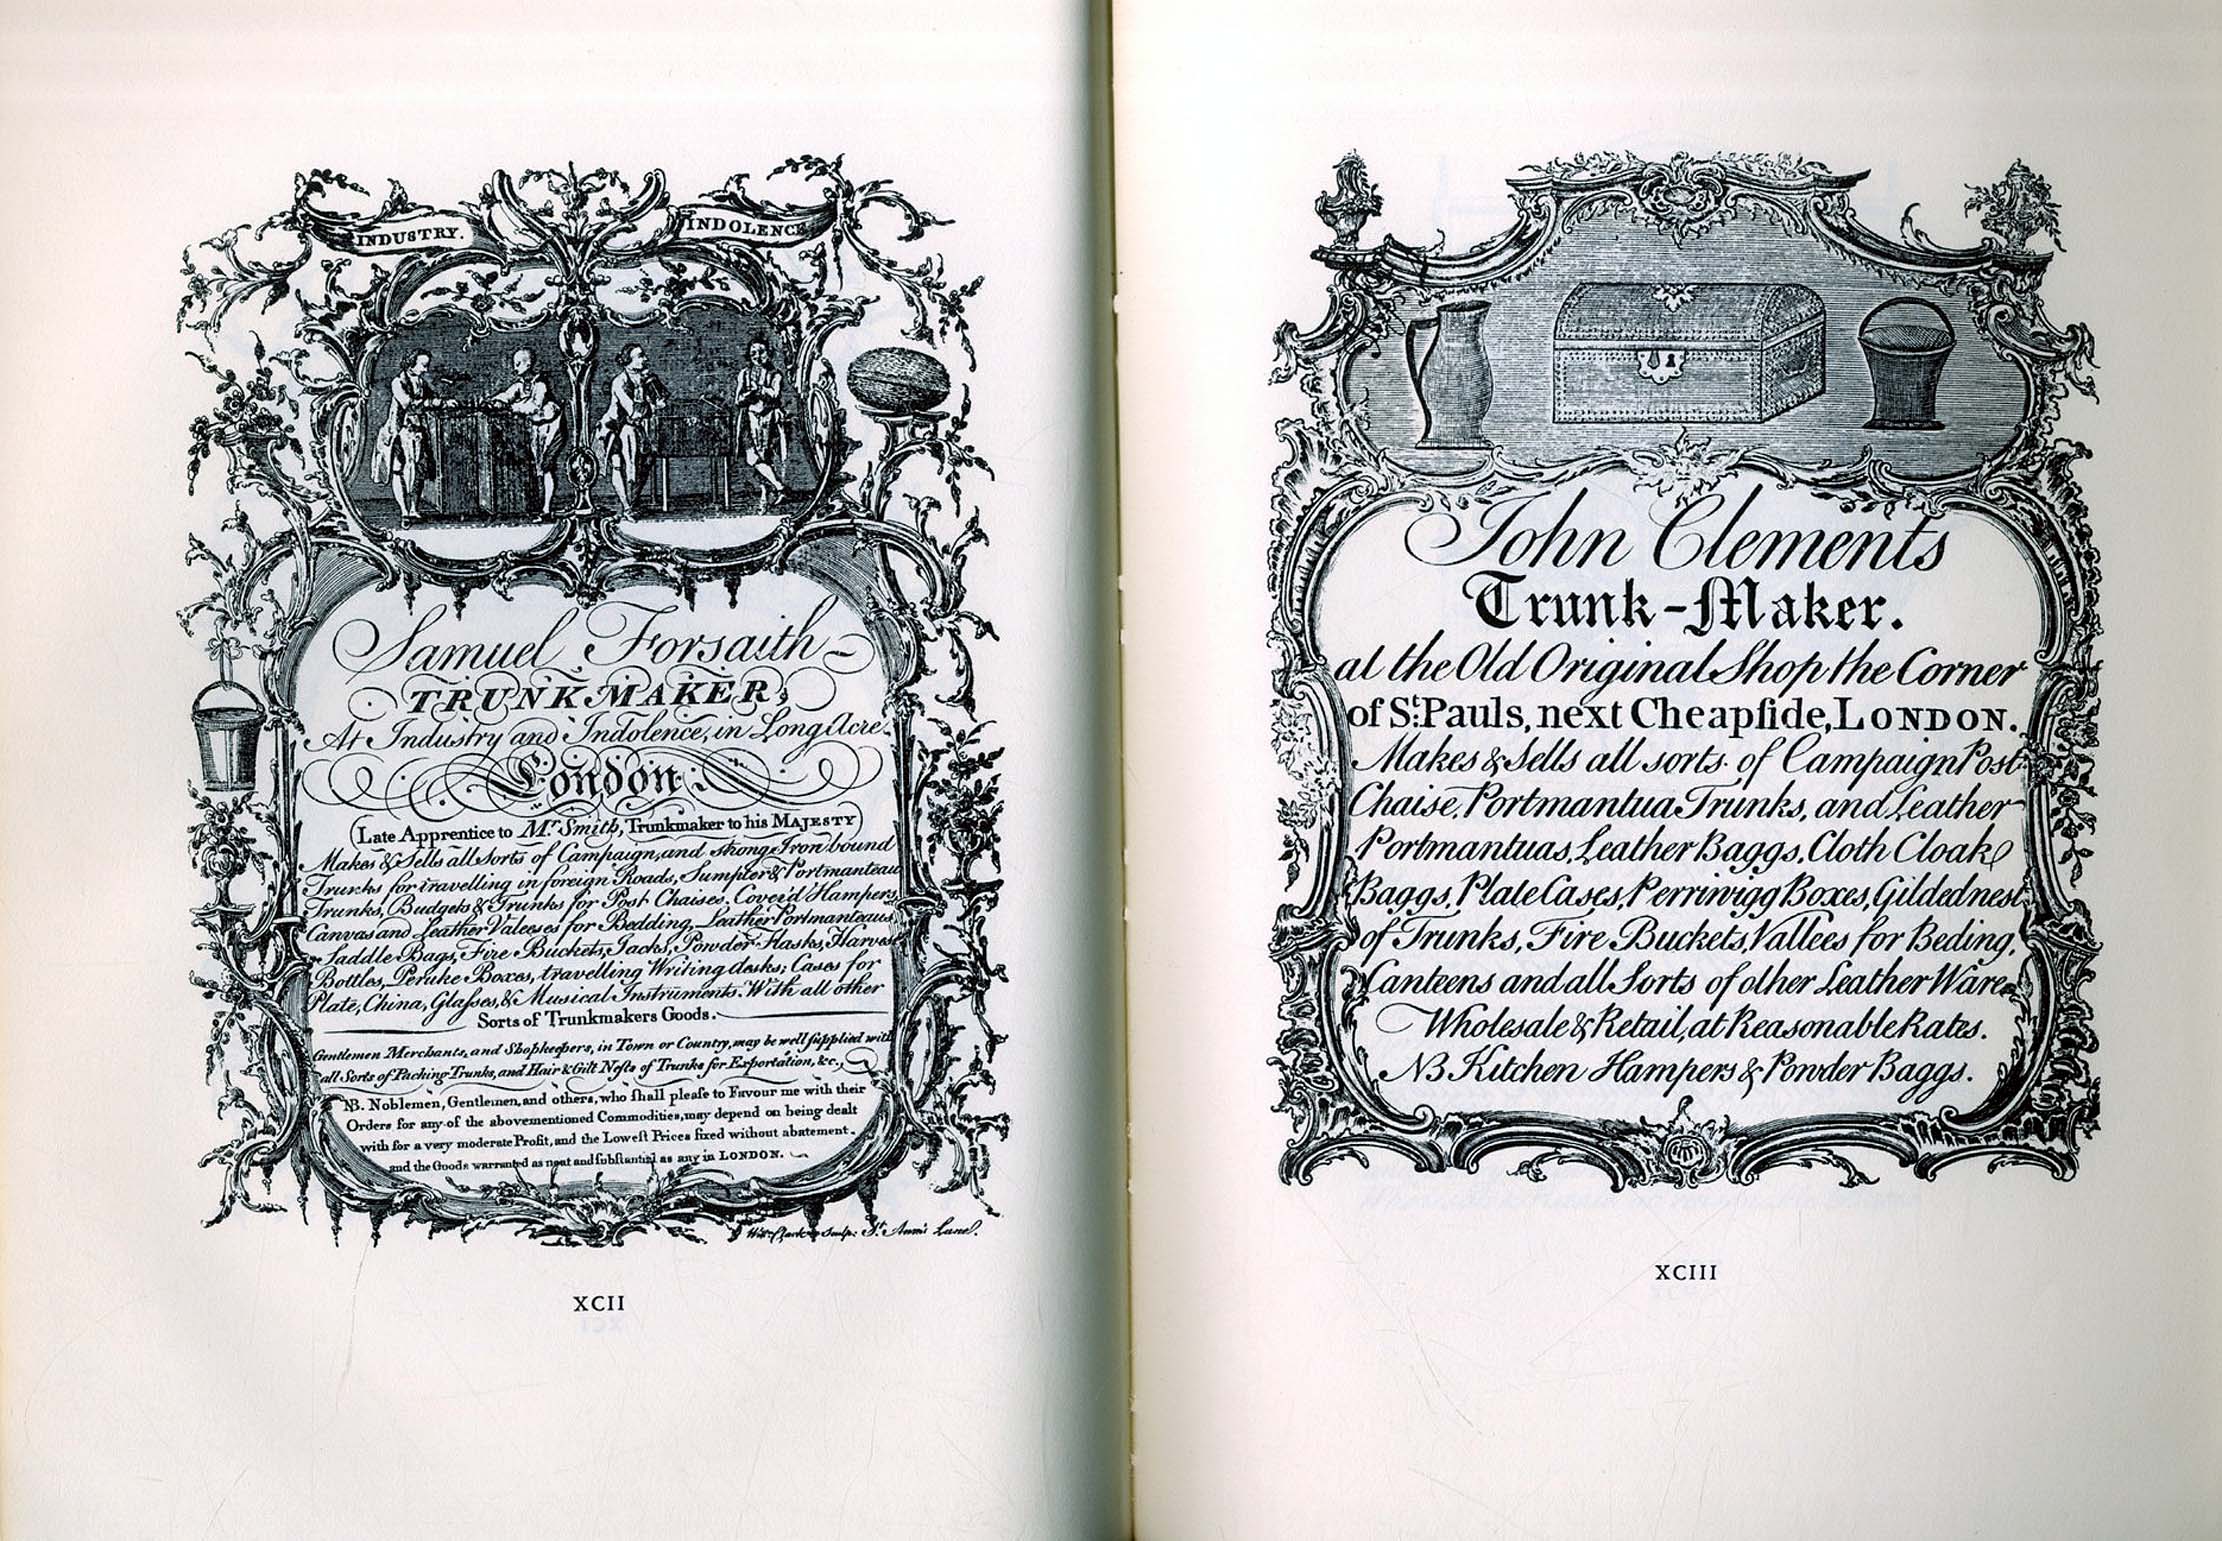 INDUSTRY.
INDOLENCE
Samuel Forsaith
TRUNKMAKER,
At Industry and Indolence, in Long Acre.
London.
(Late Apprentice to Mr Smith, Trunkmaker to his MAJESTY)
Makes & Sells all Sorts of Campaign, and strong Iron bound
Trunks for travelling in foreign Roads, Sumpter & Portmanteau
Trunks, Budgets & Trunks for Post Chaises, Cover'd Hampers,
Canvas and Leather Valeeses for Bedding, Leather Portmanteaus,
Saddle Bags, Fire Buckets, Jacks, Powder Flasks, Harvest
Bottles, Peruke Boxes, travelling Writing desks; Cases for
Plate, China, Glaſses, & Musical Instruments. With all other
Sorts of Trunkmakers Goods.
Gentlemen Merchants, and Shopkeepers, in Town or Country, may be well ſupplied with
all Sorts of Packing Trunks, and Hair & Gilt Neſts of Trunks for Exportation, &c.
NB. Noblemen, Gentlemen, and others, who ſhall pleaſe to Favour me with their
Orders for any of the abovementioned Commodities, may depend on being dealt
with for a very moderate Profit, and the Loweſt Prices fixed without abatement.
and the Goods warranted as neat and ſubſtantial as any in LONDON.
Sculp: St. Ann's Lane.
XCII
John Clements
Trunk-Maker.
at the Old Original Shop the Corner
of St: Pauls, next Cheapſide, LONDON.
Makes & Sells all sorts of Campaign Post-
Chaise, Portmantua Trunks, and Leather
Portmantuas, Leather Baggs, Cloth Cloak
Baggs, Plate Cases, Perriwigg Boxes, Gilded nest
of Trunks, Fire Buckets, Vallees for Beding,
Canteens and all Sorts of other Leather Ware
Wholesale & Retail, at Reasonable Rates.
NB Kitchen Hampers & Powder Baggs.
XCIII